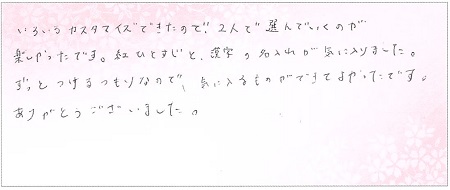 いろいろカスタマイズできたので、2人で選んでいくのが
楽しかったです。紅ひとすじと、漢字の名入れが気に入りました。
ずっとつけるつもりなので、気に入るものができてよかったです。
ありがとうございました。